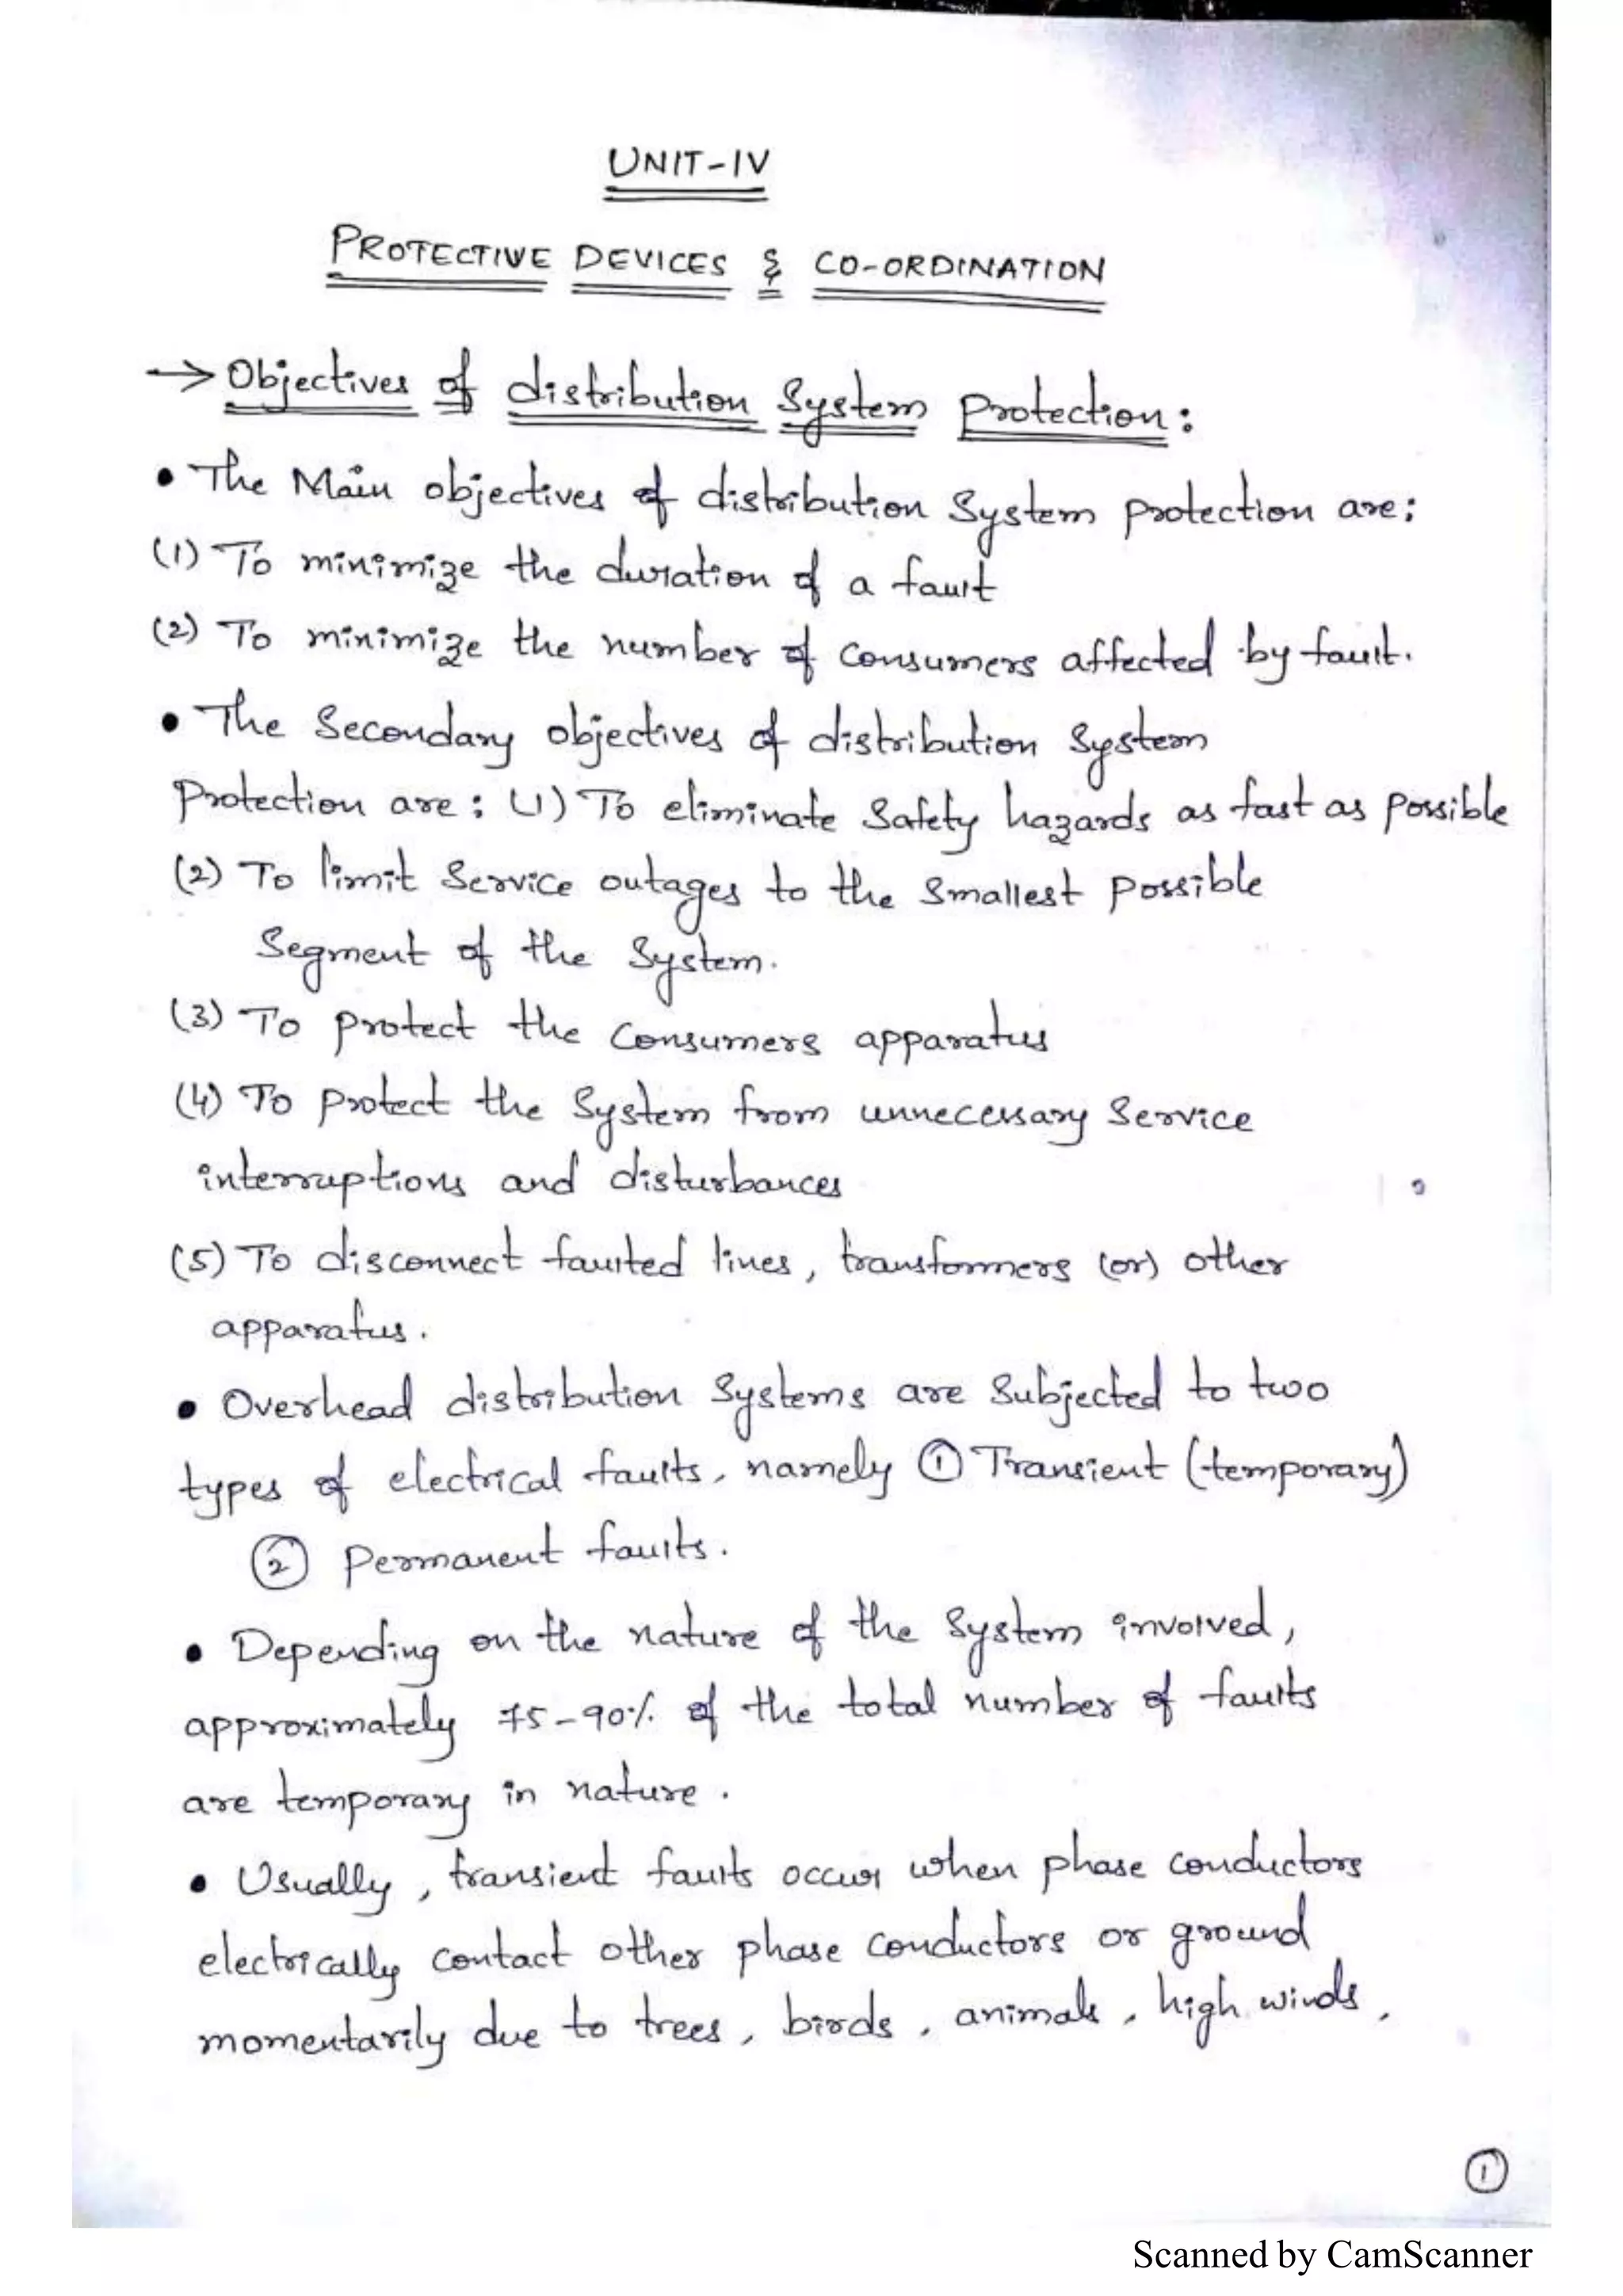 UNIT-IV
PROTECTIVE DEVICES & CO-ORDINATION
→ Objectives of distribution System protection:
• The Main objectives of distribution System protection are:
(1) To minimize the duration of a fault
(2) To minimize the number of consumers affected by fault.
• The Secondary objectives of distribution System
protection are: (1) To eliminate Safety hazards as fast as possible
(2) To limit Service outages to the Smallest possible
Segment of the System.
(3) To protect the Consumers apparatus
(4) To protect the System from unnecessary Service
interruptions and disturbances
(5) To disconnect faulted lines, transformers (or) other
apparatus.
• Overhead distribution Systems are Subjected to two
types of electrical faults, namely ① Transient (temporary)
② permanent faults.
• Depending on the nature of the System involved,
approximately 75-90% of the total number of faults
are temporary in nature.
• Usually, transient faults occur when phase conductors
electrically contact other phase conductors or ground
momentarily due to trees, birds, animals, high winds,
①
Scanned by CamScanner